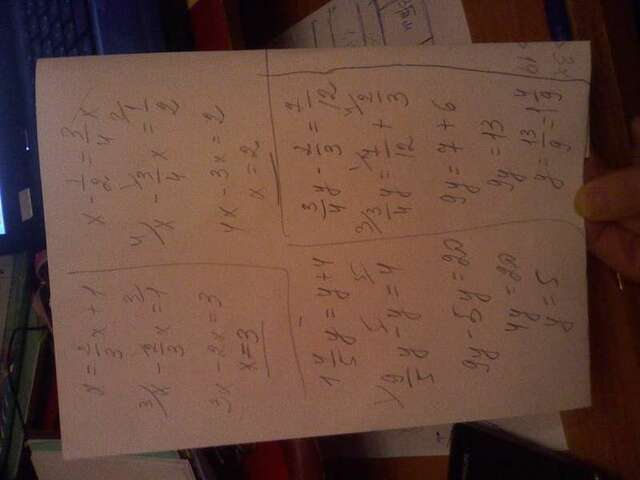 x = 2/3 x + 1
³⁄x - 2/3 x = ³⁄1
3x - 2x = 3
x = 3
x - 1/2 = 3/4 x
⁴⁄x - 3/4 x = ²⁄1/2
4x - 3x = 2
x = 2
1 4/5 y = y + 4
9/5 y - ⁵⁄y = ⁵⁄4
9y - 5y = 20
4y = 20
y = 5
3/4 y - 2/3 = 7/12
³⁄3/4 y = ¹⁄7/12 + ⁴⁄2/3
9y = 7 + 6
9y = 13
y = 13/9 = 1 4/9